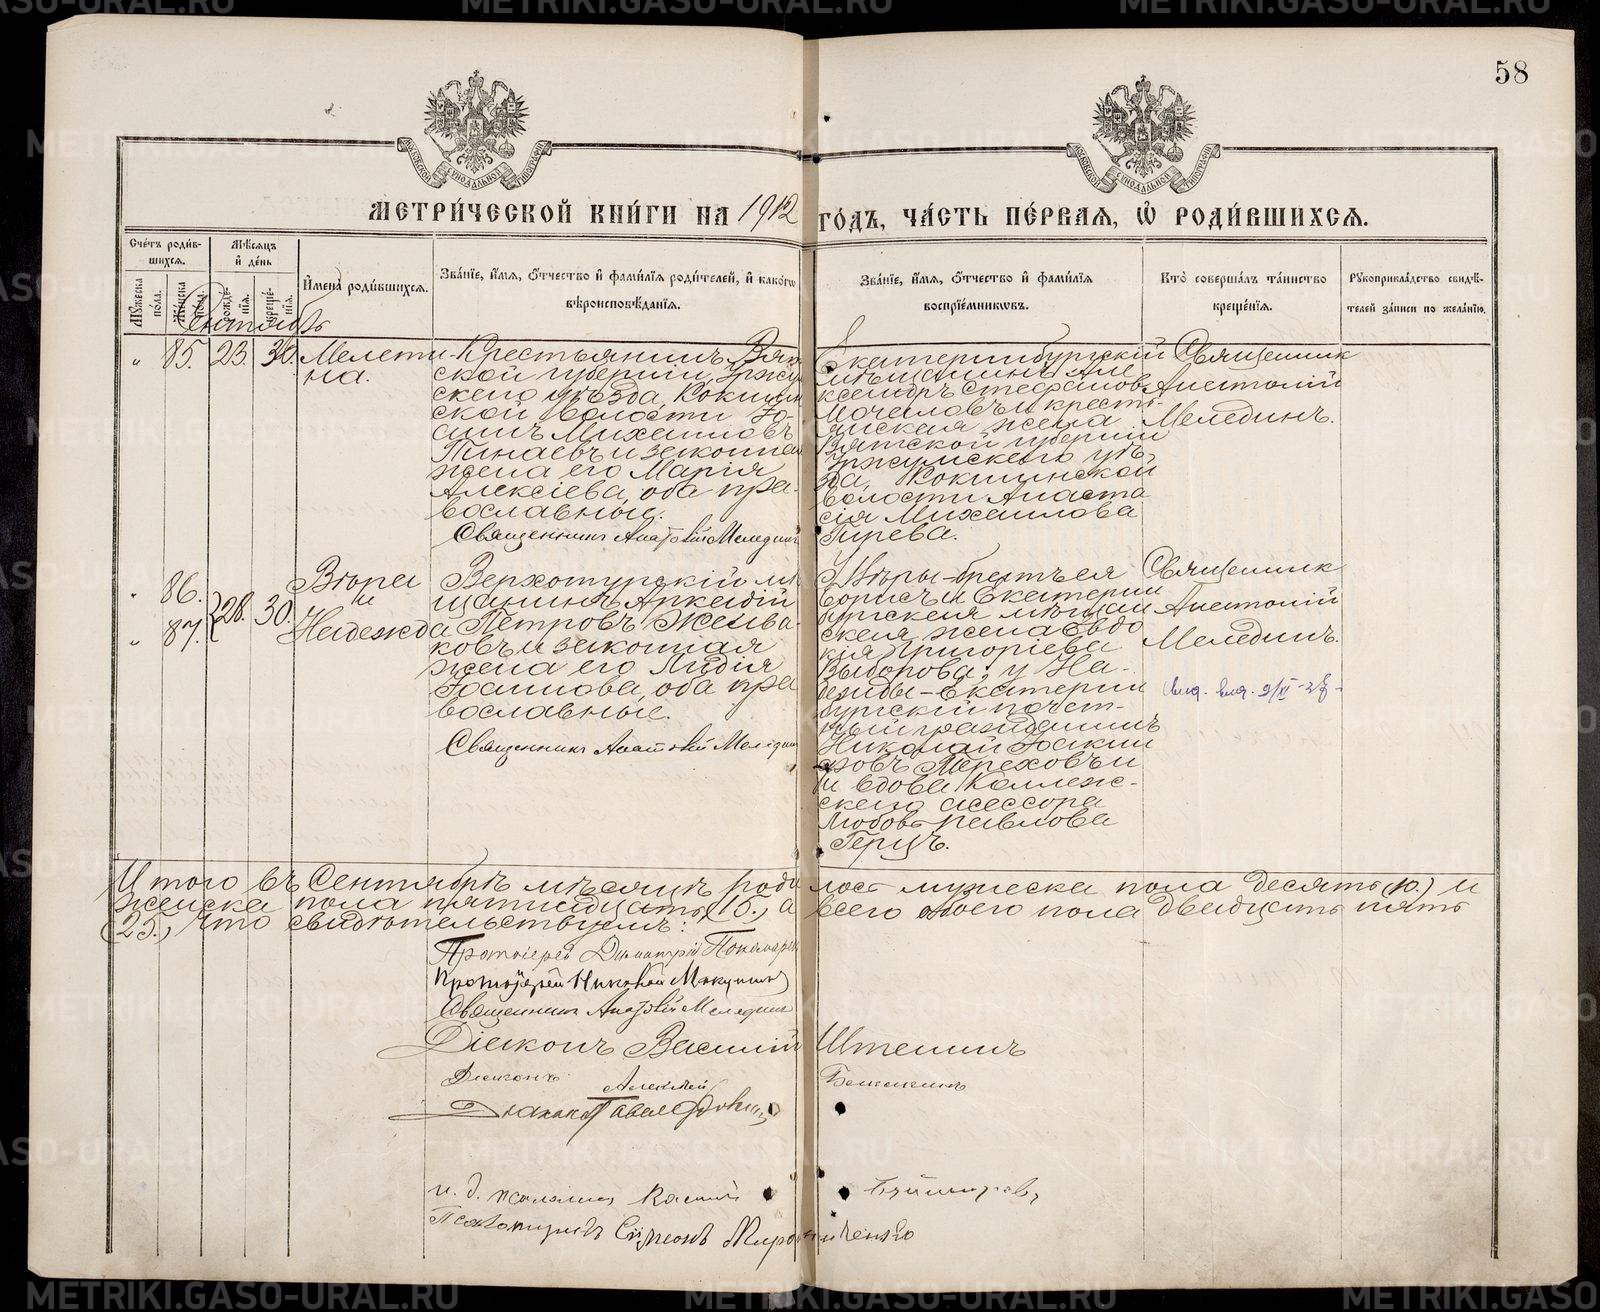 58
МОСКОВСКОЙ СѴНОДАЛЬНОЙ ТИПОГРАФІИ
МОСКОВСКОЙ СѴНОДАЛЬНОЙ ТИПОГРАФІИ
МЕТРИ́ЧЕСКОЙ КНИ́ГИ НА 1912 ГО́ДЪ, ЧА́СТЬ ПЕ́РВАЯ, Ѡ҆ РОДИ́ВШИХСЯ.
Сче́тъ роди́в-
шихся.
Му́жеска по́ла.
Же́нска по́ла.
Мѣ́сяцъ
и҆ де́нь
рожде́-
нїя.
креще́-
нїя.
И҆мена̀ роди́вшихся.
Зва́нїе, и҆́мя, ѻ҆́тчество и҆ фами́лїя роди́телей, и҆ како́гѡ
вѣроисповѣ́данїя.
Зва́нїе, и҆́мя, ѻ҆́тчество и҆ фами́лїя
воспрїе́мниковъ.
Кто̀ соверша́лъ та́инство
креще́нїя.
Рꙋкоприкла́дство свидѣ́-
телей за́писи по жела́нїю.
Сентябрь
" 85. 23. 30. Мелети-
на.
Крестьянинъ Вят-
ской губерніи, Уржум
скаго уѣзда, Кокшин
ской волости Іо-
аннъ Михаиловъ
Пинаевъ и законная
жена его Марія
Алексіева, оба пра-
вославные.
Священникъ Анатолій Мелединъ
Екатеринбургскій
мѣщанинъ Але
ксандръ Стефановъ
Мочаловъ и кресть-
янская жена
Вятской губерніи
Уржумскаго уѣз-
да, Кокшинской
волости Анаста
сія Михаилова
Гирева.
Священникъ
Анатолій
Мелединъ.
" 86.
" 87. 28. 30.
Вѣра
и
Надежда
Верхотурскій мѣ
щанинъ Аркадій
Петровъ
ковъ и законная
жена его Лидія
Іоаннова, оба пра
вославные.
Священникъ Анатолій Мелединъ
У Вѣры-братъ ея
Борисъ и Екатерин
бургская мѣщан
ская жена Евдо
кія Григоріева
Выборова; у На-
дежды-Екатерин
бургскій почет-
ный гражданинъ
Николай Іоаким
овъ Тереховъ и
и вдова Коллеж-
скаго асессора
Любовь Павлова
Герцъ.
Священникъ
Анатолій
Мелединъ.
Итого въ Сентябрѣ мѣсяцѣ роди лось мужеска пола десять (10.) и
женска пола пятнадцать (15.), а всего обоего пола двадцать пять
(25.), что свидѣтельствуемъ:
Протоіерей Димитрій Пономарев
Протоіерей Николай
Священникъ Анатолій Мелединъ
Діаконъ Василій Иттенинъ
Діаконъ Алексѣй
Діаконъ Павел
и. д. псаломщ. Василій
Псаломщикъ Сѵмеонъ Мирошниченко
METRIKI.GASO-URAL.RU